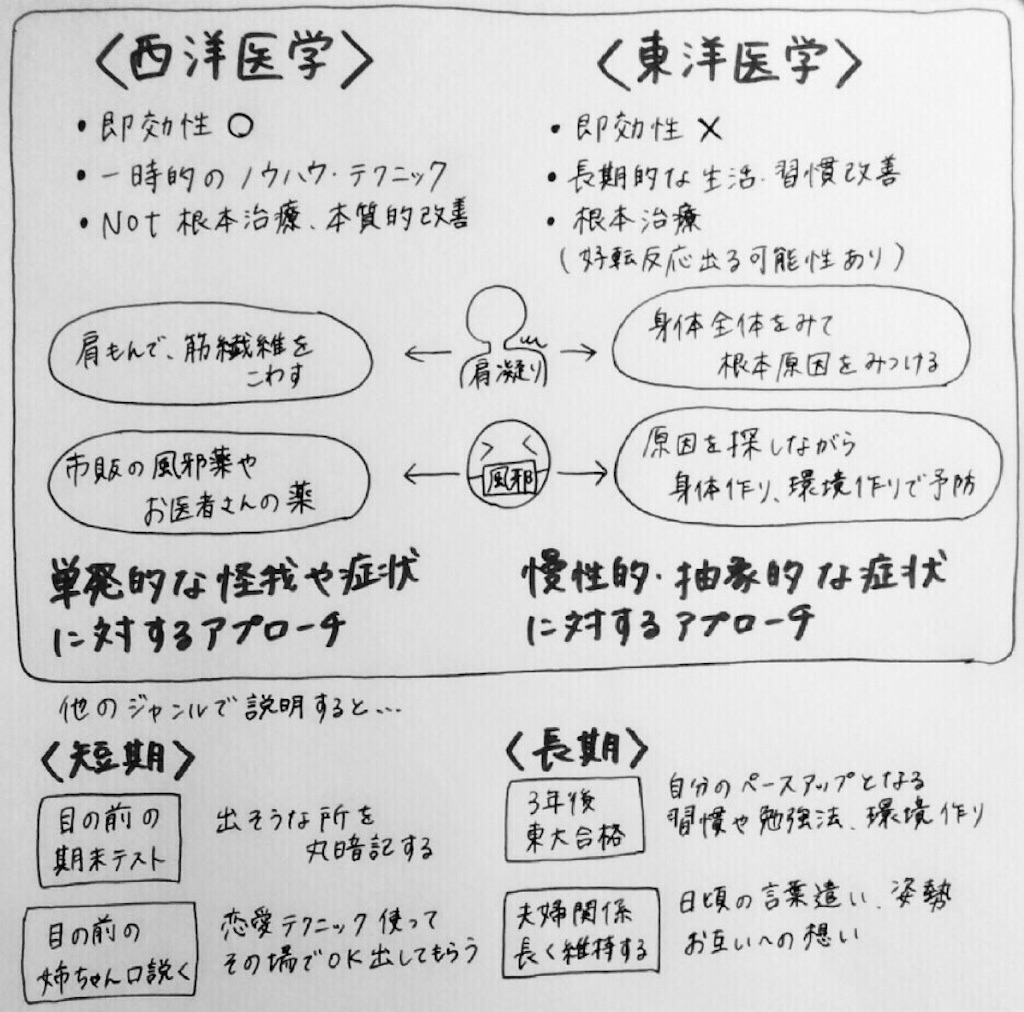 〈西洋医学〉
・即効性 ○
・一時的のノウハウ・テクニック
・Not 根本治療、本質的改善
〈東洋医学〉
・即効性 ×
・長期的な生活・習慣改善
・根本治療
(好転反応出る可能性あり)
肩もんで、筋繊維を
こわす
肩凝り
身体全体をみて
根本原因をみつける
市販の風邪薬や
お医者さんの薬
風邪
原因を探しながら
身体作り、環境作りで予防
単発的な怪我や症状
に対するアプローチ
慢性的・抽象的な症状
に対するアプローチ
他のジャンルで説明すると…
〈短期〉
目の前の
期末テスト
出そうな所を
丸暗記する
目の前の
姉ちゃん口説く
恋愛テクニック使って
その場でOK出してもらう
〈長期〉
3年後
東大合格
自分のペースアップとなる
習慣や勉強法、環境作り
夫婦関係
長く維持する
日頃の言葉遣い、姿勢
お互いへの想い